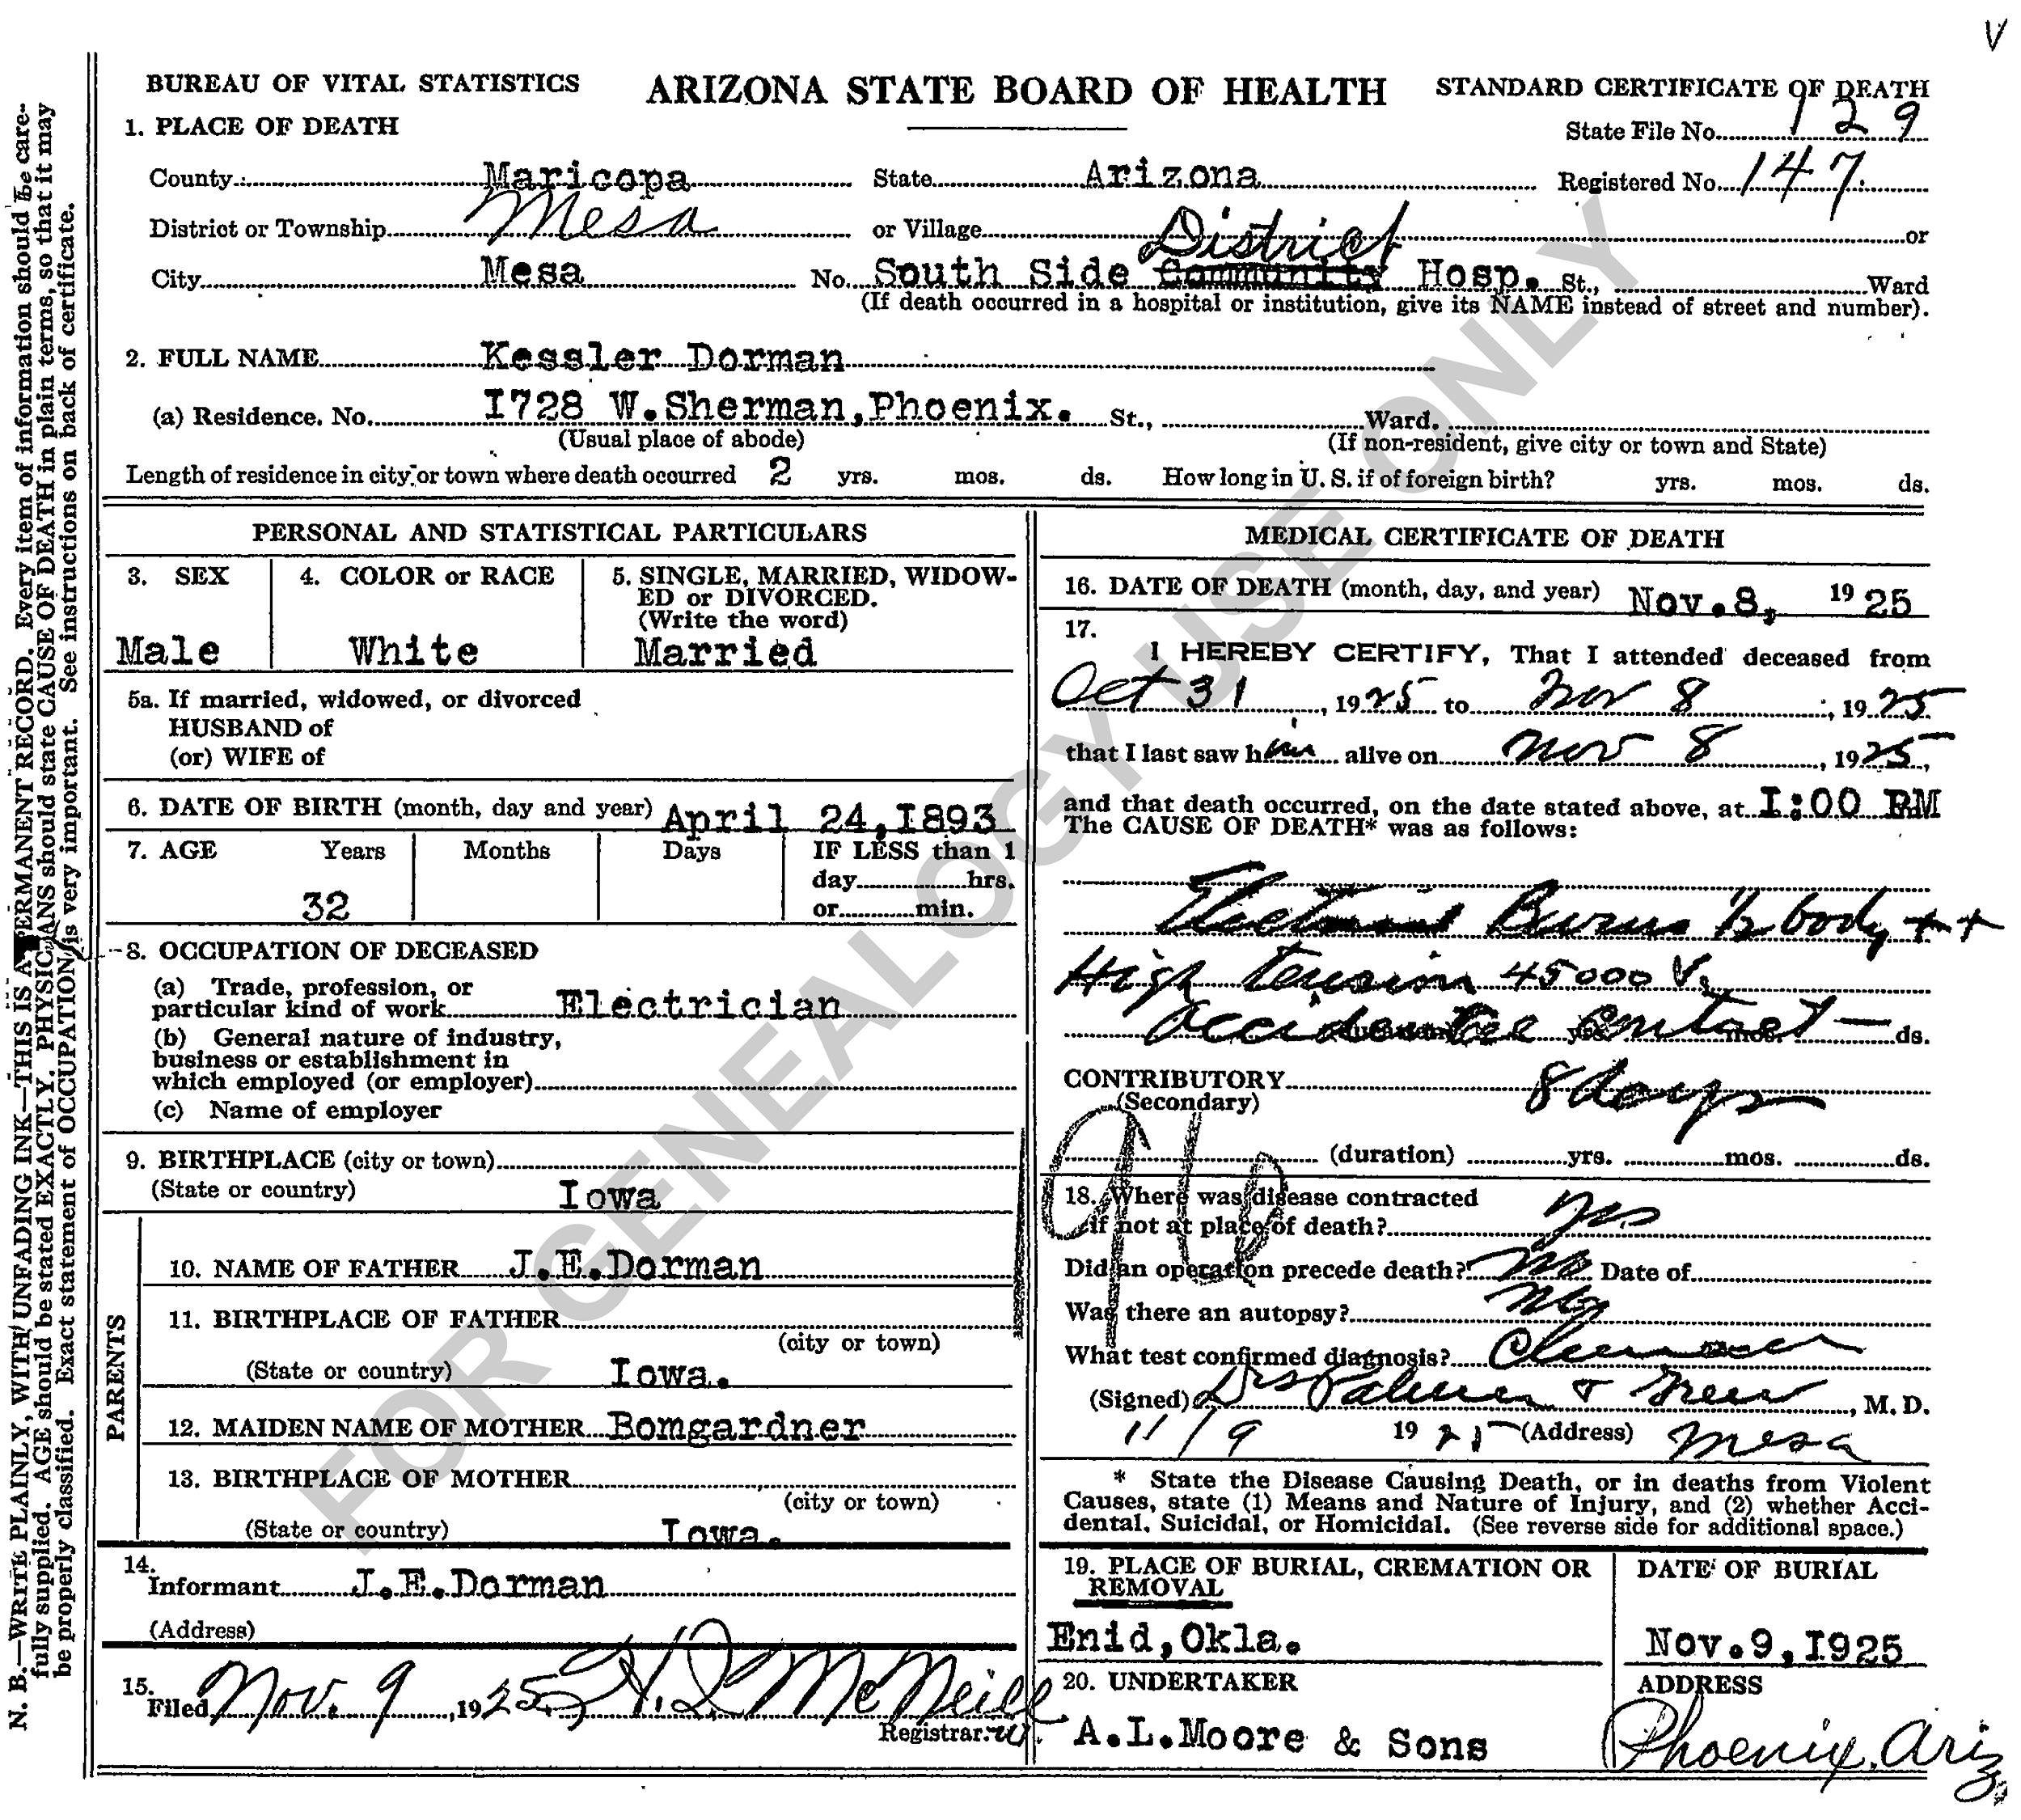 V
BUREAU OF VITAL STATISTICS ARIZONA STATE BOARD OF HEALTH STANDARD CERTIFICATE OF DEATH
1. PLACE OF DEATH
State File No. 129
County Maricopa State Arizona Registered No. 147
District or Township Mesa or Village or
District
City Mesa No. South Side Community Hosp. St., Ward
(If death occurred in a hospital or institution, give its NAME instead of street and number).
2. FULL NAME Kessler Dorman
(a) Residence. No. I728 W.Sherman,Phoenix. St., Ward.
(Usual place of abode) (If non-resident, give city or town and State)
Length of residence in city or town where death occurred 2 yrs. mos. ds. How long in U. S. if of foreign birth? yrs. mos. ds.
PERSONAL AND STATISTICAL PARTICULARS
3. SEX 4. COLOR or RACE 5. SINGLE, MARRIED, WIDOW-
ED or DIVORCED.
(Write the word)
Male White Married
5a. If married, widowed, or divorced
HUSBAND of
(or) WIFE of
6. DATE OF BIRTH (month, day and year) April 24,I893
7. AGE Years Months Days IF LESS than 1
day hrs.
32 or min.
8. OCCUPATION OF DECEASED
(a) Trade, profession, or
particular kind of work Electrician
(b) General nature of industry,
business or establishment in
which employed (or employer)
(c) Name of employer
9. BIRTHPLACE (city or town)
(State or country) Iowa
PARENTS
10. NAME OF FATHER J.E.Dorman
11. BIRTHPLACE OF FATHER
(city or town)
(State or country) Iowa.
12. MAIDEN NAME OF MOTHER Bomgardner
13. BIRTHPLACE OF MOTHER
(city or town)
(State or country) Iowa.
14.
Informant J.E.Dorman
(Address)
15.
Filed Nov. 9, 1925 McNeill
Registrar.
MEDICAL CERTIFICATE OF DEATH
16. DATE OF DEATH (month, day, and year) Nov.8, 19 25
17.
I HEREBY CERTIFY, That I attended deceased from
Oct 31, 1925 to Nov 8, 1925
that I last saw him alive on Nov 8, 1925,
and that death occurred, on the date stated above, at I:00 PM
The CAUSE OF DEATH* was as follows:
Burns 1/2 body ++
High tension 45000 V.
accidental contact — ds.
CONTRIBUTORY 8 days
(Secondary)
(duration) yrs. mos. ds.
18. Where was disease contracted
if not at place of death? yes
Did an operation precede death? No Date of
Was there an autopsy? No
What test confirmed diagnosis?
(Signed) Drs Palmer & , M. D.
11/9 19 25 (Address) Mesa
* State the Disease Causing Death, or in deaths from Violent
Causes, state (1) Means and Nature of Injury, and (2) whether Acci-
dental, Suicidal, or Homicidal. (See reverse side for additional space.)
19. PLACE OF BURIAL, CREMATION OR
REMOVAL
DATE OF BURIAL
Enid,Okla. Nov.9,I925
20. UNDERTAKER ADDRESS
A.L.Moore & Sons Phoenix, Ariz
N. B.—WRITE PLAINLY, WITH UNFADING INK—THIS IS A PERMANENT RECORD. Every item of information should be care-
fully supplied. AGE should be stated EXACTLY. PHYSICIANS should state CAUSE OF DEATH in plain terms, so that it may
be properly classified. Exact statement of OCCUPATION is very important. See instructions on back of certificate.
FOR GENEALOGY USE ONLY